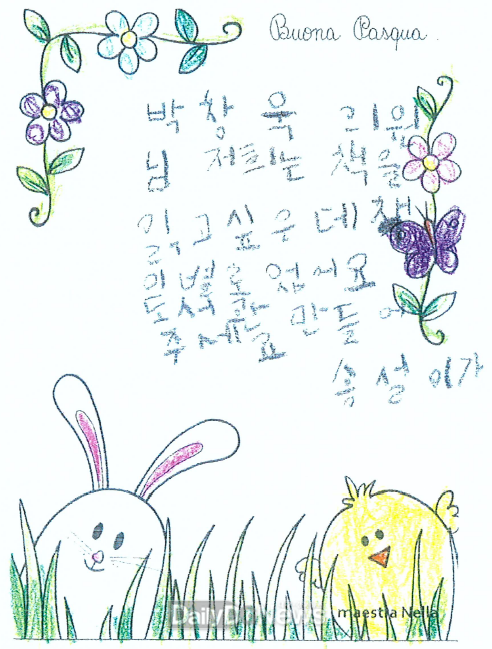 Buona Pasqua.
박창욱
님 저희는 책을
읽고싶은데책
이별로없서요
만들어
주세요
송설이가
DailyDgnews
maestra Nella